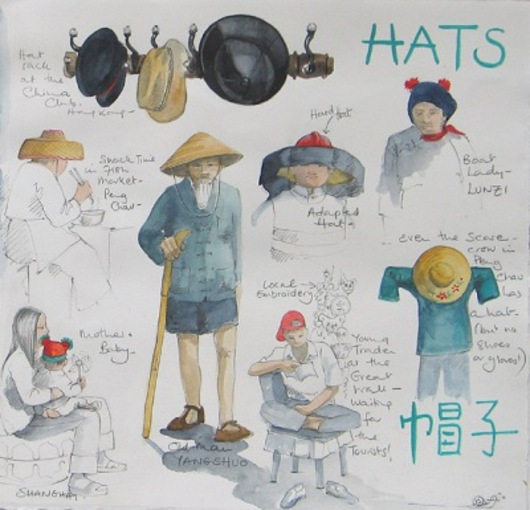 HATS
Hat
rack
at the
China
Club.
Hong Kong -
Hard hat
Snack Time
in Fish
Market -
Peng
Chau -
Adapted
Hat -
Boat
Lady -
LUNZI
... Even the Scare-
crow in
Peng
Chau
has
a hat -
(but no
shoes
or gloves!)
Local
Embroidery
Mother &
Baby -
Young
Trader
at the
Great
Wall -
Waiting
for
the
Tourists!
Old Man
YANGSHUO
SHANGHAI
帽子